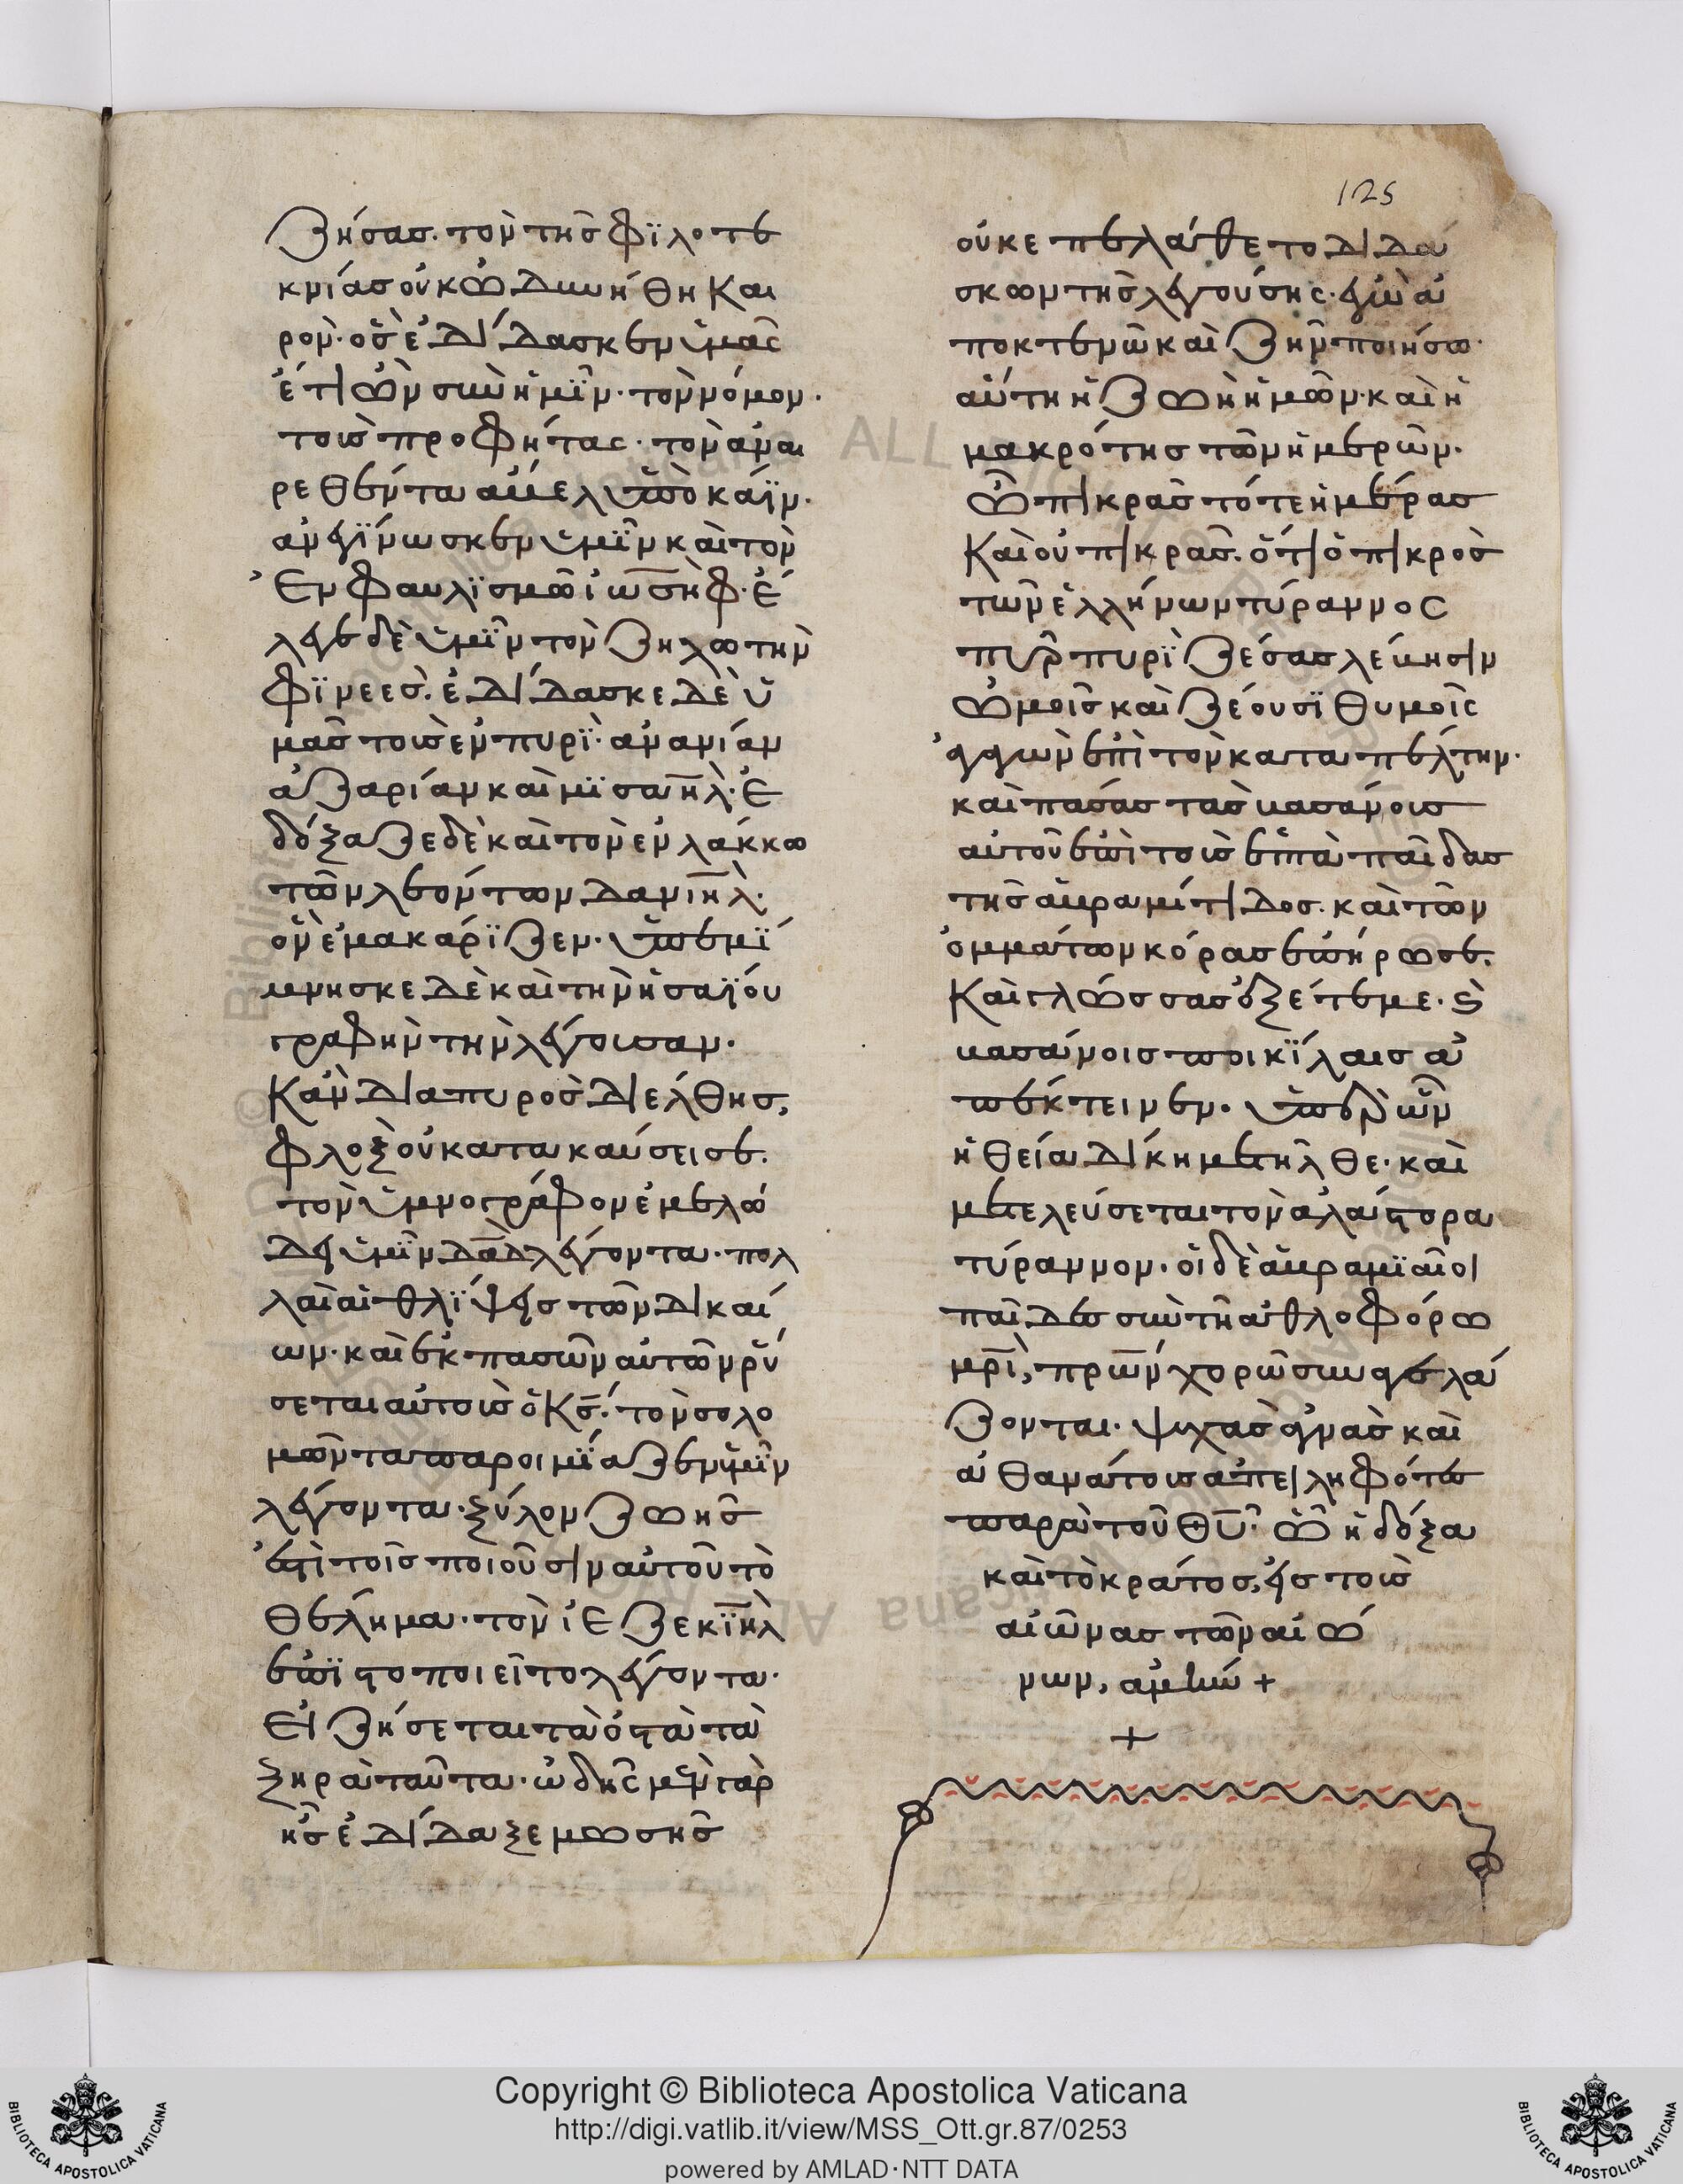 125
ζήσασ. τὸν τῆσ φϊλοτε
κνίασ οὐκ ὠδυνήθη και
ρον. ὃσ ἐδίδασκεν ὑμᾶς
ἔτι ὢν σὺν ἡμῖν. τὸν νόμον.
τοὺσ προφήτας. τὸν ἀναι
ρεθέντα ἄβελ ὑπὸ κάϊν.
ἀνεγίνωσκεν ὑμῖν καὶ τὸν
ἐν φαυλϊσμῶ ἰωσὴφ. ἔ
λεγε δὲ ὑμῖν τὸν ζηλωτὴν
φϊνεεσ. ἐδίδασκε δὲ ὑ
μᾶσ τοὺσ ἐν πυρὶ. ἀνανίαν
ἀζαρίαν καὶ μϊσαὴλ. ἐ
δόξαζε δὲ καὶ τὸν ἐν λάκκω
τῶν λεόντων δανιὴλ.
ὃν ἐμακάρϊζεν. ὑπεμϊ
μνησκε δὲ καὶ τὴν ἡσαΐου
γραφὴν τὴν λέγουσαν.
Κἂν διαπυρὸσ διέλθησ,
φλὸξ οὐ κατακαύσει σε.
τὸν ὑμνογράφον ἐμελώ
δει ὑμῖν δᾱδ λέγοντα. πολ
λαὶ αἱ θλίψεισ τῶν δικαί
ων. καὶ ἐκ πασῶν αὐτῶν ῥύ
σεται αὐτοὺσ ὁ κ̄ς. τὸν σολο
μῶντα παροιμϊάζεν ἡμῖν
λέγοντα. ξύλον ζωῆσ
ἐστὶ τοῖσ ποιοῦσιν αὐτοῦ τὸ
θέλημα. τὸν ἰεζεκϊὴλ
ἐπϊστοποιεῖτο λέγοντα.
Εἰ ζήσεται τὰ ὀστᾶ τὰ
ξηρὰ ταῦτα. ὠδῆς μὲν γὰρ
ἧσ ἐδίδαξε μωσῆσ
οὐκ ἐπελάθετο διδά
σκων τῆσ λεγούσης. ἐγὼ ἀ
ποκτενῶ καὶ ζῆν ποιήσω.
αὕτη ἡ ζωὴ ἡμῶν. καὶ ἡ
μακρότησ τῶν ἡμερῶν.
ὢ πικρᾶσ τότε ἡμέρασ
Καὶ οὐ πικρᾶσ. ὅτι ὁ πικρὸσ
τῶν ἑλλήνων τύραννος
πῦρ πυρὶ ζέσασ λέβησιν
ὠμοῖσ καὶ ζέουσϊ θυμοῖς
ἀγαγὼν ἐπὶ τὸν καταπέλτην.
καὶ πάσασ τὰσ βασάνουσ
αὐτοῦ ἐπὶ τοὺσ ἑπτὰ παῖδασ
τῆσ ἁβραμίτιδοσ. καὶ τῶν
ὀμμάτων κόρασ ἐπήρωσε.
Καὶ γλώσσασ ἐξέτεμε. ϗ
βασάνοισ ποικϊλαισ ἀ
πέκτεινεν. ὑπὲρ ὧν
ἡ θεία δίκη μετῆλθε. καὶ
μετελεύσεται τὸν ἀλάστορα
τύραννον. οἱ δὲ ἁβραμϊαῖοι
παῖδεσ σὺν τῆ ἀθλοφόρω
μρ̄ὶ, πρ̄ων χορῶ συναγελά
ζονται. ψυχὰσ ἁγνὰσ καὶ
ἀθανάτουσ ἀπειληφότεσ
παρὰ τοῦ θ̄υ. ὧ ἡ δόξα
καὶ τὸ κράτοσ, εἰσ τοὺσ
αἰῶνασ τῶν αἰώ
νων, ἀμήν +
+
Copyright © Biblioteca Apostolica Vaticana
http://digi.vatlib.it/view/MSS_Ott.gr.87/0253
powered by AMLAD·NTT DATA
BIBLIOTECA APOSTOLICA VATICANA
BIBLIOTECA APOSTOLICA VATICANA